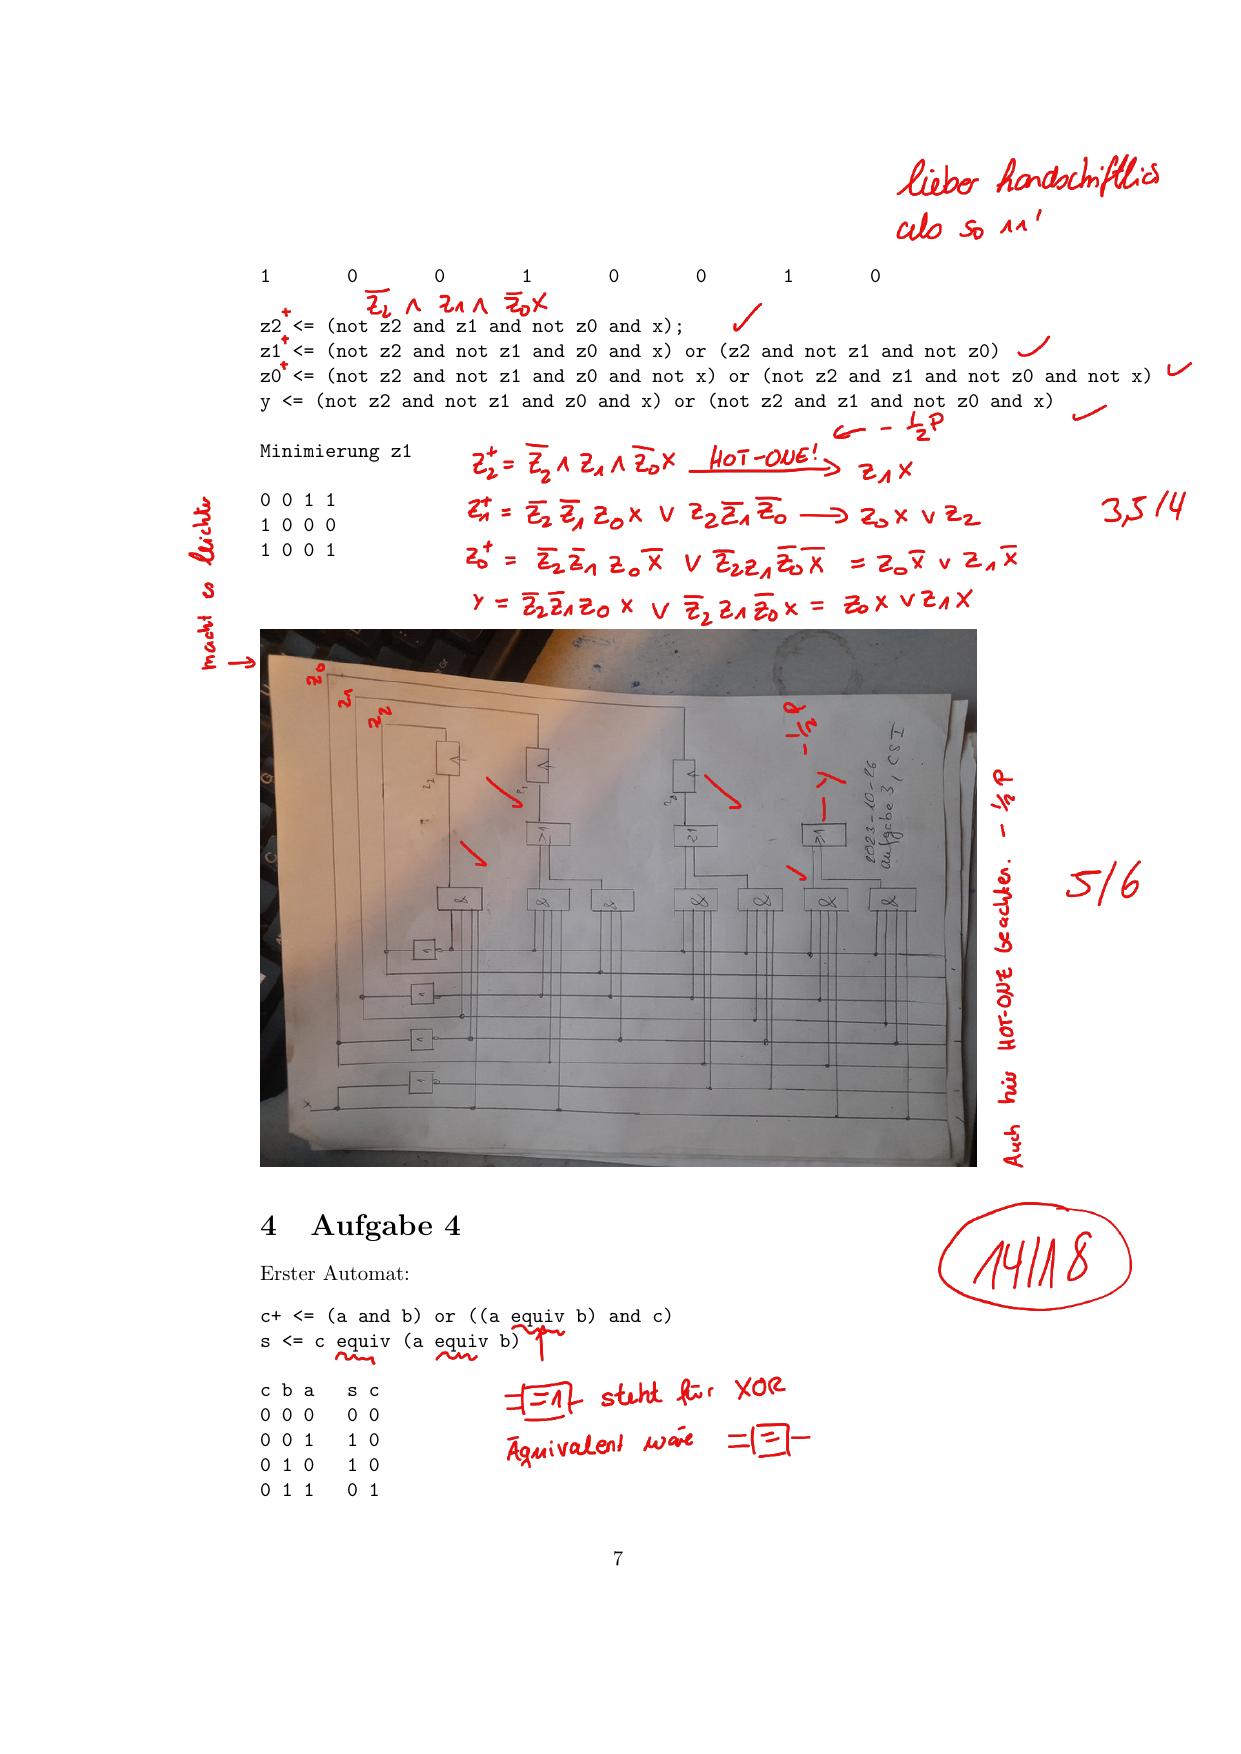 lieber handschriftlich
als so
1 0 0 1 0 0 1 0
z̅₂ ∧ z₁ ∧ z̅₀x
z2⁺ <= (not z2 and z1 and not z0 and x);
z1⁺ <= (not z2 and not z1 and z0 and x) or (z2 and not z1 and not z0)
z0⁺ <= (not z2 and not z1 and z0 and not x) or (not z2 and z1 and not z0 and not x)
y <= (not z2 and not z1 and z0 and x) or (not z2 and z1 and not z0 and x)
← - ½P
Minimierung z1
z₂⁺ = z̅₂ ∧ z₁ ∧ z̅₀x HOT-ONE! → z₁x
0 0 1 1
1 0 0 0
1 0 0 1
z₁⁺ = z̅₂ z̅₁ z₀ x ∨ z₂ z̅₁ z̅₀ → z₀x ∨ z₂
3,5/4
z₀⁺ = z̅₂ z̅₁ z₀ x̅ ∨ z̅₂ z₁ z̅₀ x̅ = z₀ x̅ ∨ z₁ x̅
Y = z̅₂ z̅₁ z₀ x ∨ z̅₂ z₁ z̅₀ x = z₀x ∨ z₁x
macht es leichter →
z₀
z₁
z₂
z₂
z₁
z₀
≥1
≥1
≥1
- Y
- ½ P
2023-10-26
aufgabe 3, CS I
&
&
&
&
&
&
&
1
1
1
1
x
Auch hier HOT-ONE beachten. - ½ P
5/6
4 Aufgabe 4
14/18
Erster Automat:
c+ <= (a and b) or ((a equiv b) and c)
s <= c equiv (a equiv b)
c b a s c
0 0 0 0 0
0 0 1 1 0
0 1 0 1 0
0 1 1 0 1
=1 steht für XOR
Äquivalent wäre =
7